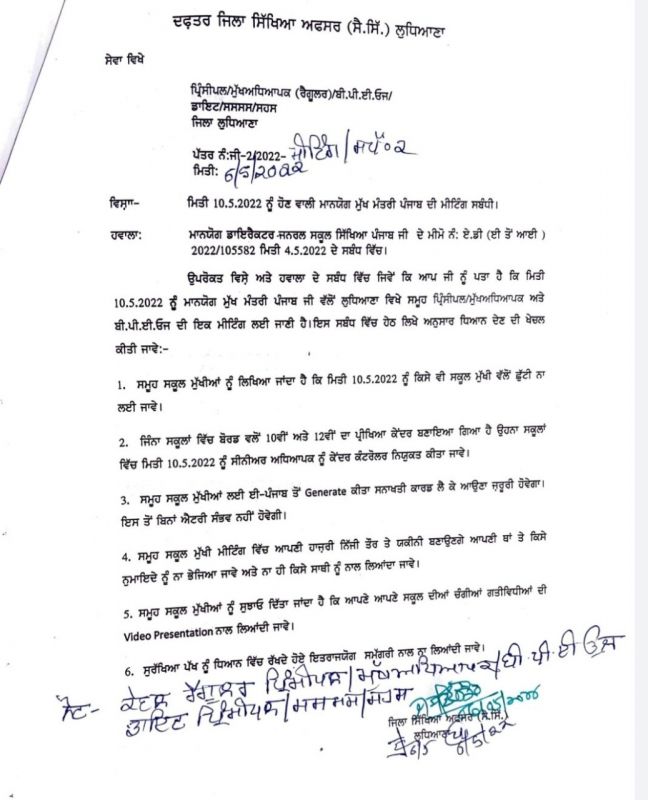 ਦਫ਼ਤਰ ਜਿਲਾ ਸਿੱਖਿਆ ਅਫਸਰ (ਸੈ.ਸਿੱ.) ਲੁਧਿਆਣਾ
ਸੇਵਾ ਵਿਖੇ
ਪ੍ਰਿੰਸੀਪਲ/ਮੁੱਖਅਧਿਆਪਕ (ਰੈਗੂਲਰ)/ਬੀ.ਪੀ.ਈ.ਓਜ/
ਡਾਇਟ/ਸਸਸਸ/ਸਹਸ
ਜਿਲਾ ਲੁਧਿਆਣਾ
ਪੱਤਰ ਨੰ:ਜੀ-2/2022- ਮੀਟਿੰਗ/
ਮਿਤੀ: 6/5/2022
ਵਿਸ਼ਾ- ਮਿਤੀ 10.5.2022 ਨੂੰ ਹੋਣ ਵਾਲੀ ਮਾਨਯੋਗ ਮੁੱਖ ਮੰਤਰੀ ਪੰਜਾਬ ਦੀ ਮੀਟਿੰਗ ਸਬੰਧੀ।
ਹਵਾਲਾ: ਮਾਨਯੋਗ ਡਾਇਰੈਕਟਰ ਜਨਰਲ ਸਕੂਲ ਸਿੱਖਿਆ ਪੰਜਾਬ ਜੀ ਦੇ ਮੀਮੋ ਨੰ: ਏ.ਡੀ (ਈ ਤੋਂ ਆਈ )
2022/105582 ਮਿਤੀ 4.5.2022 ਦੇ ਸਬੰਧ ਵਿੱਚ।
ਉਪਰੋਕਤ ਵਿਸ਼ੇ ਅਤੇ ਹਵਾਲਾ ਦੇ ਸਬੰਧ ਵਿੱਚ ਜਿਵੇਂ ਕਿ ਆਪ ਜੀ ਨੂੰ ਪਤਾ ਹੈ ਕਿ ਮਿਤੀ
10.5.2022 ਨੂੰ ਮਾਨਯੋਗ ਮੁੱਖ ਮੰਤਰੀ ਪੰਜਾਬ ਜੀ ਵੱਲੋਂ ਲੁਧਿਆਣਾ ਵਿਖੇ ਸਮੂਹ ਪ੍ਰਿੰਸੀਪਲ/ਮੁੱਖਅਧਿਆਪਕ ਅਤੇ
ਬੀ.ਪੀ.ਈ.ਓਜ ਦੀ ਇਕ ਮੀਟਿੰਗ ਲਈ ਜਾਣੀ ਹੈ।ਇਸ ਸਬੰਧ ਵਿੱਚ ਹੇਠ ਲਿਖੇ ਅਨੁਸਾਰ ਧਿਆਨ ਦੇਣ ਦੀ ਖੇਚਲ
ਕੀਤੀ ਜਾਵੇ:-
1. ਸਮੂਹ ਸਕੂਲ ਮੁੱਖੀਆਂ ਨੂੰ ਲਿਖਿਆ ਜਾਂਦਾ ਹੈ ਕਿ ਮਿਤੀ 10.5.2022 ਨੂੰ ਕਿਸੇ ਵੀ ਸਕੂਲ ਮੁਖੀ ਵੱਲੋਂ ਛੁੱਟੀ ਨਾ
ਲਈ ਜਾਵੇ।
2. ਜਿੰਨਾ ਸਕੂਲਾਂ ਵਿੱਚ ਬੋਰਡ ਵਲੋਂ 10ਵੀਂ ਅਤੇ 12ਵੀਂ ਦਾ ਪ੍ਰੀਖਿਆ ਕੇਂਦਰ ਬਣਾਇਆ ਗਿਆ ਹੈ ਉਹਨਾ ਸਕੂਲਾਂ
ਵਿੱਚ ਮਿਤੀ 10.5.2022 ਨੂੰ ਸੀਨੀਅਰ ਅਧਿਆਪਕ ਨੂੰ ਕੇਂਦਰ ਕੰਟਰੋਲਰ ਨਿਯੁਕਤ ਕੀਤਾ ਜਾਵੇ।
3. ਸਮੂਹ ਸਕੂਲ ਮੁੱਖੀਆਂ ਲਈ ਈ-ਪੰਜਾਬ ਤੋਂ Generate ਕੀਤਾ ਸਨਾਖਤੀ ਕਾਰਡ ਲੈ ਕੇ ਆਉਣਾ ਜ਼ਰੂਰੀ ਹੋਵੇਗਾ।
ਇਸ ਤੋਂ ਬਿਨਾਂ ਐਟਰੀ ਸੰਭਵ ਨਹੀਂ ਹੋਵੇਗੀ।
4. ਸਮੂਹ ਸਕੂਲ ਮੁੱਖੀ ਮੀਟਿੰਗ ਵਿੱਚ ਆਪਣੀ ਹਾਜ਼ਰੀ ਨਿੱਜੀ ਤੌਰ ਤੇ ਯਕੀਨੀ ਬਣਾਉਣਗੇ ਆਪਣੀ ਥਾਂ ਤੇ ਕਿਸੇ
ਨੁਮਾਇਦੇ ਨੂੰ ਨਾ ਭੇਜਿਆ ਜਾਵੇ ਅਤੇ ਨਾ ਹੀ ਕਿਸੇ ਸਾਥੀ ਨੂੰ ਨਾਲ ਲਿਆਂਦਾ ਜਾਵੇ।
5. ਸਮੂਹ ਸਕੂਲ ਮੁੱਖੀਆਂ ਨੂੰ ਸੁਝਾਓ ਦਿੱਤਾ ਜਾਂਦਾ ਹੈ ਕਿ ਆਪਣੇ ਆਪਣੇ ਸਕੂਲ ਦੀਆਂ ਚੰਗੀਆਂ ਗਤੀਵਿਧੀਆਂ ਦੀ
Video Presentation ਨਾਲ ਲਿਆਂਦੀ ਜਾਵੇ।
6. ਸੁਰੱਖਿਆ ਪੱਖ ਨੂੰ ਧਿਆਨ ਵਿੱਚ ਰੱਖਦੇ ਹੋਏ ਇਤਰਾਜਯੋਗ ਸਮੱਗਰੀ ਨਾਲ ਨਾ ਲਿਆਂਦੀ ਜਾਵੇ।
ਨੋਟ- ਕੇਵਲ ਰੈਗੂਲਰ ਪ੍ਰਿੰਸੀਪਲ/ਮੁੱਖਅਧਿਆਪਕ/ਬੀ.ਪੀ.ਈ ਓਜ
ਡਾਇਟ ਪ੍ਰਿੰਸੀਪਲ/ਸਸਸਸ/ਸਹਸ
ਜਿਲਾ ਸਿੱਖਿਆ ਅਫਸਰ (ਸੈ.ਸਿੱ.)
ਲੁਧਿਆਣਾ
6/5/22